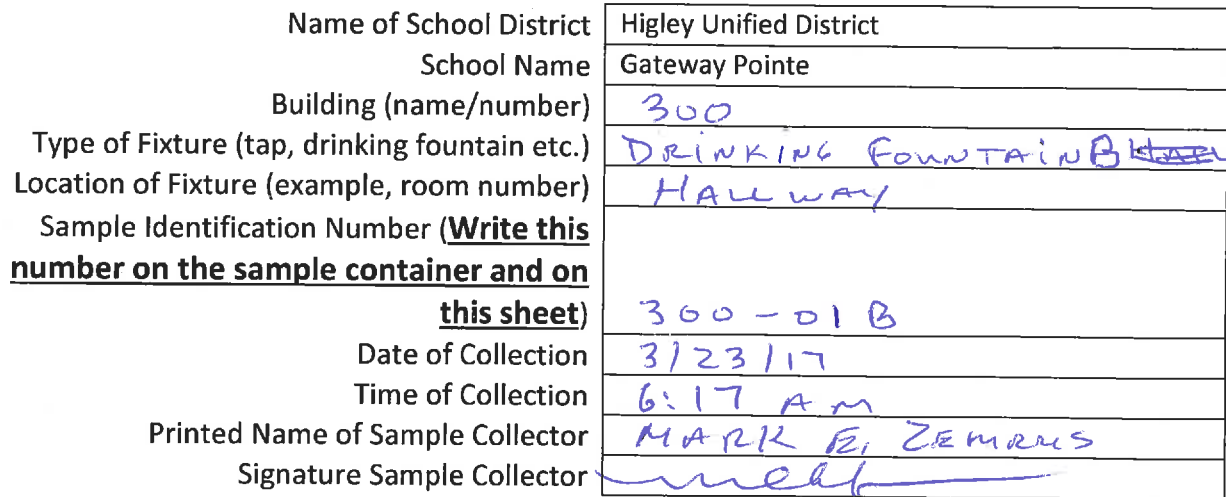 Name of School District Higley Unified District
School Name Gateway Pointe
Building (name/number) 300
Type of Fixture (tap, drinking fountain etc.) DRINKING FOUNTAIN B
Location of Fixture (example, room number) HALLWAY
Sample Identification Number (Write this
number on the sample container and on
this sheet) 300-01B
Date of Collection 3/23/17
Time of Collection 6:17 AM
Printed Name of Sample Collector MARK E.
Signature Sample Collector